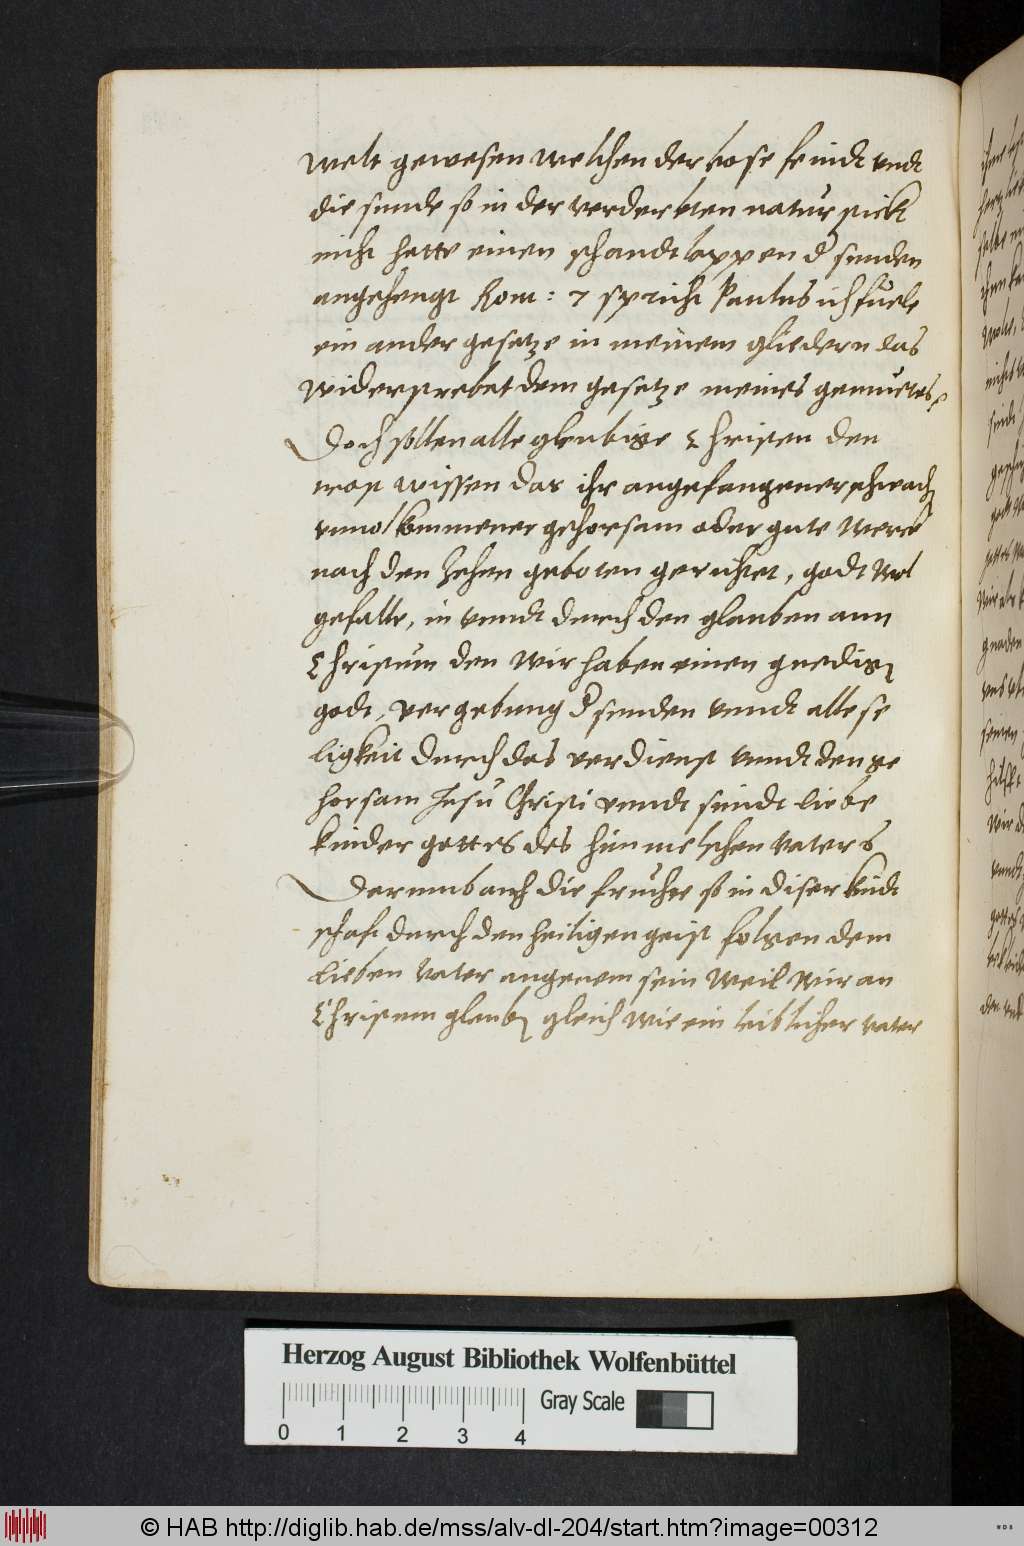 welt gewesen welchen der bose feindt vndt
die sunde so in der verderbten natur stickt
nicht hette einen schandtlappen d sunden
angehengt Rom: 7 spricht Paulus ich fuele
ein ander gesetze in meinem gliedern das
widerstrebet dem gesetze meines gemuetes
Doch sollen alle gleubige Christen den
trost wissen das ihr angefangener schwach
vnuolkommener gehorsam oder gute werck
nach den Zehen geboten gerichtet, godt wol
gefalle, in vnndt durch den glauben ann
Christum den wir haben einen gnedig
godt, vergebung d sunden vnndt alle se
ligkeit durch das verdienst vnndt den ge
horsam Jesu Christi vnndt sindt liebe
kinder gottes des himmelschen vaters
Darumb auch die fruchte so in diser kindt
schaft durch den heiligen geist folgen dem
lieben vater angenem sein weil wir an
Christum gleub gleich wie ein leiblicher vater
Herzog August Bibliothek Wolfenbüttel
Gray Scale
0 1 2 3 4
© HAB http://diglib.hab.de/mss/alv-dl-204/start.htm?image=00312